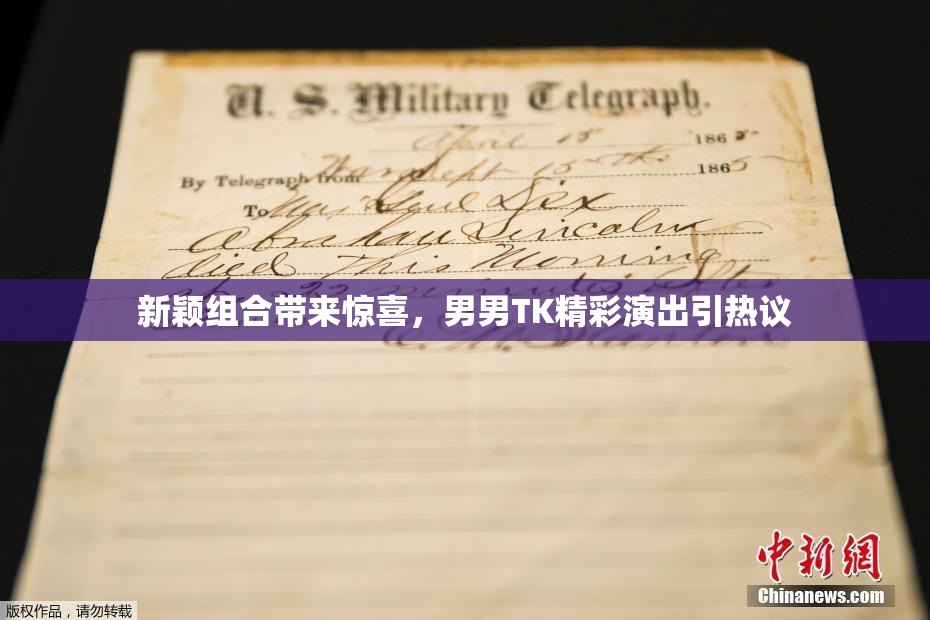 U. S. Military Telegraph.
April 15 1865
By Telegraph from War Dept 15th 1865
To Maj Genl Dix
Abraham Lincoln
died This Morning
22 minutes after
新颖组合带来惊喜，男男TK精彩演出引热议
E. M. Stanton
中新网
Chinanews.com
版权作品，请勿转载